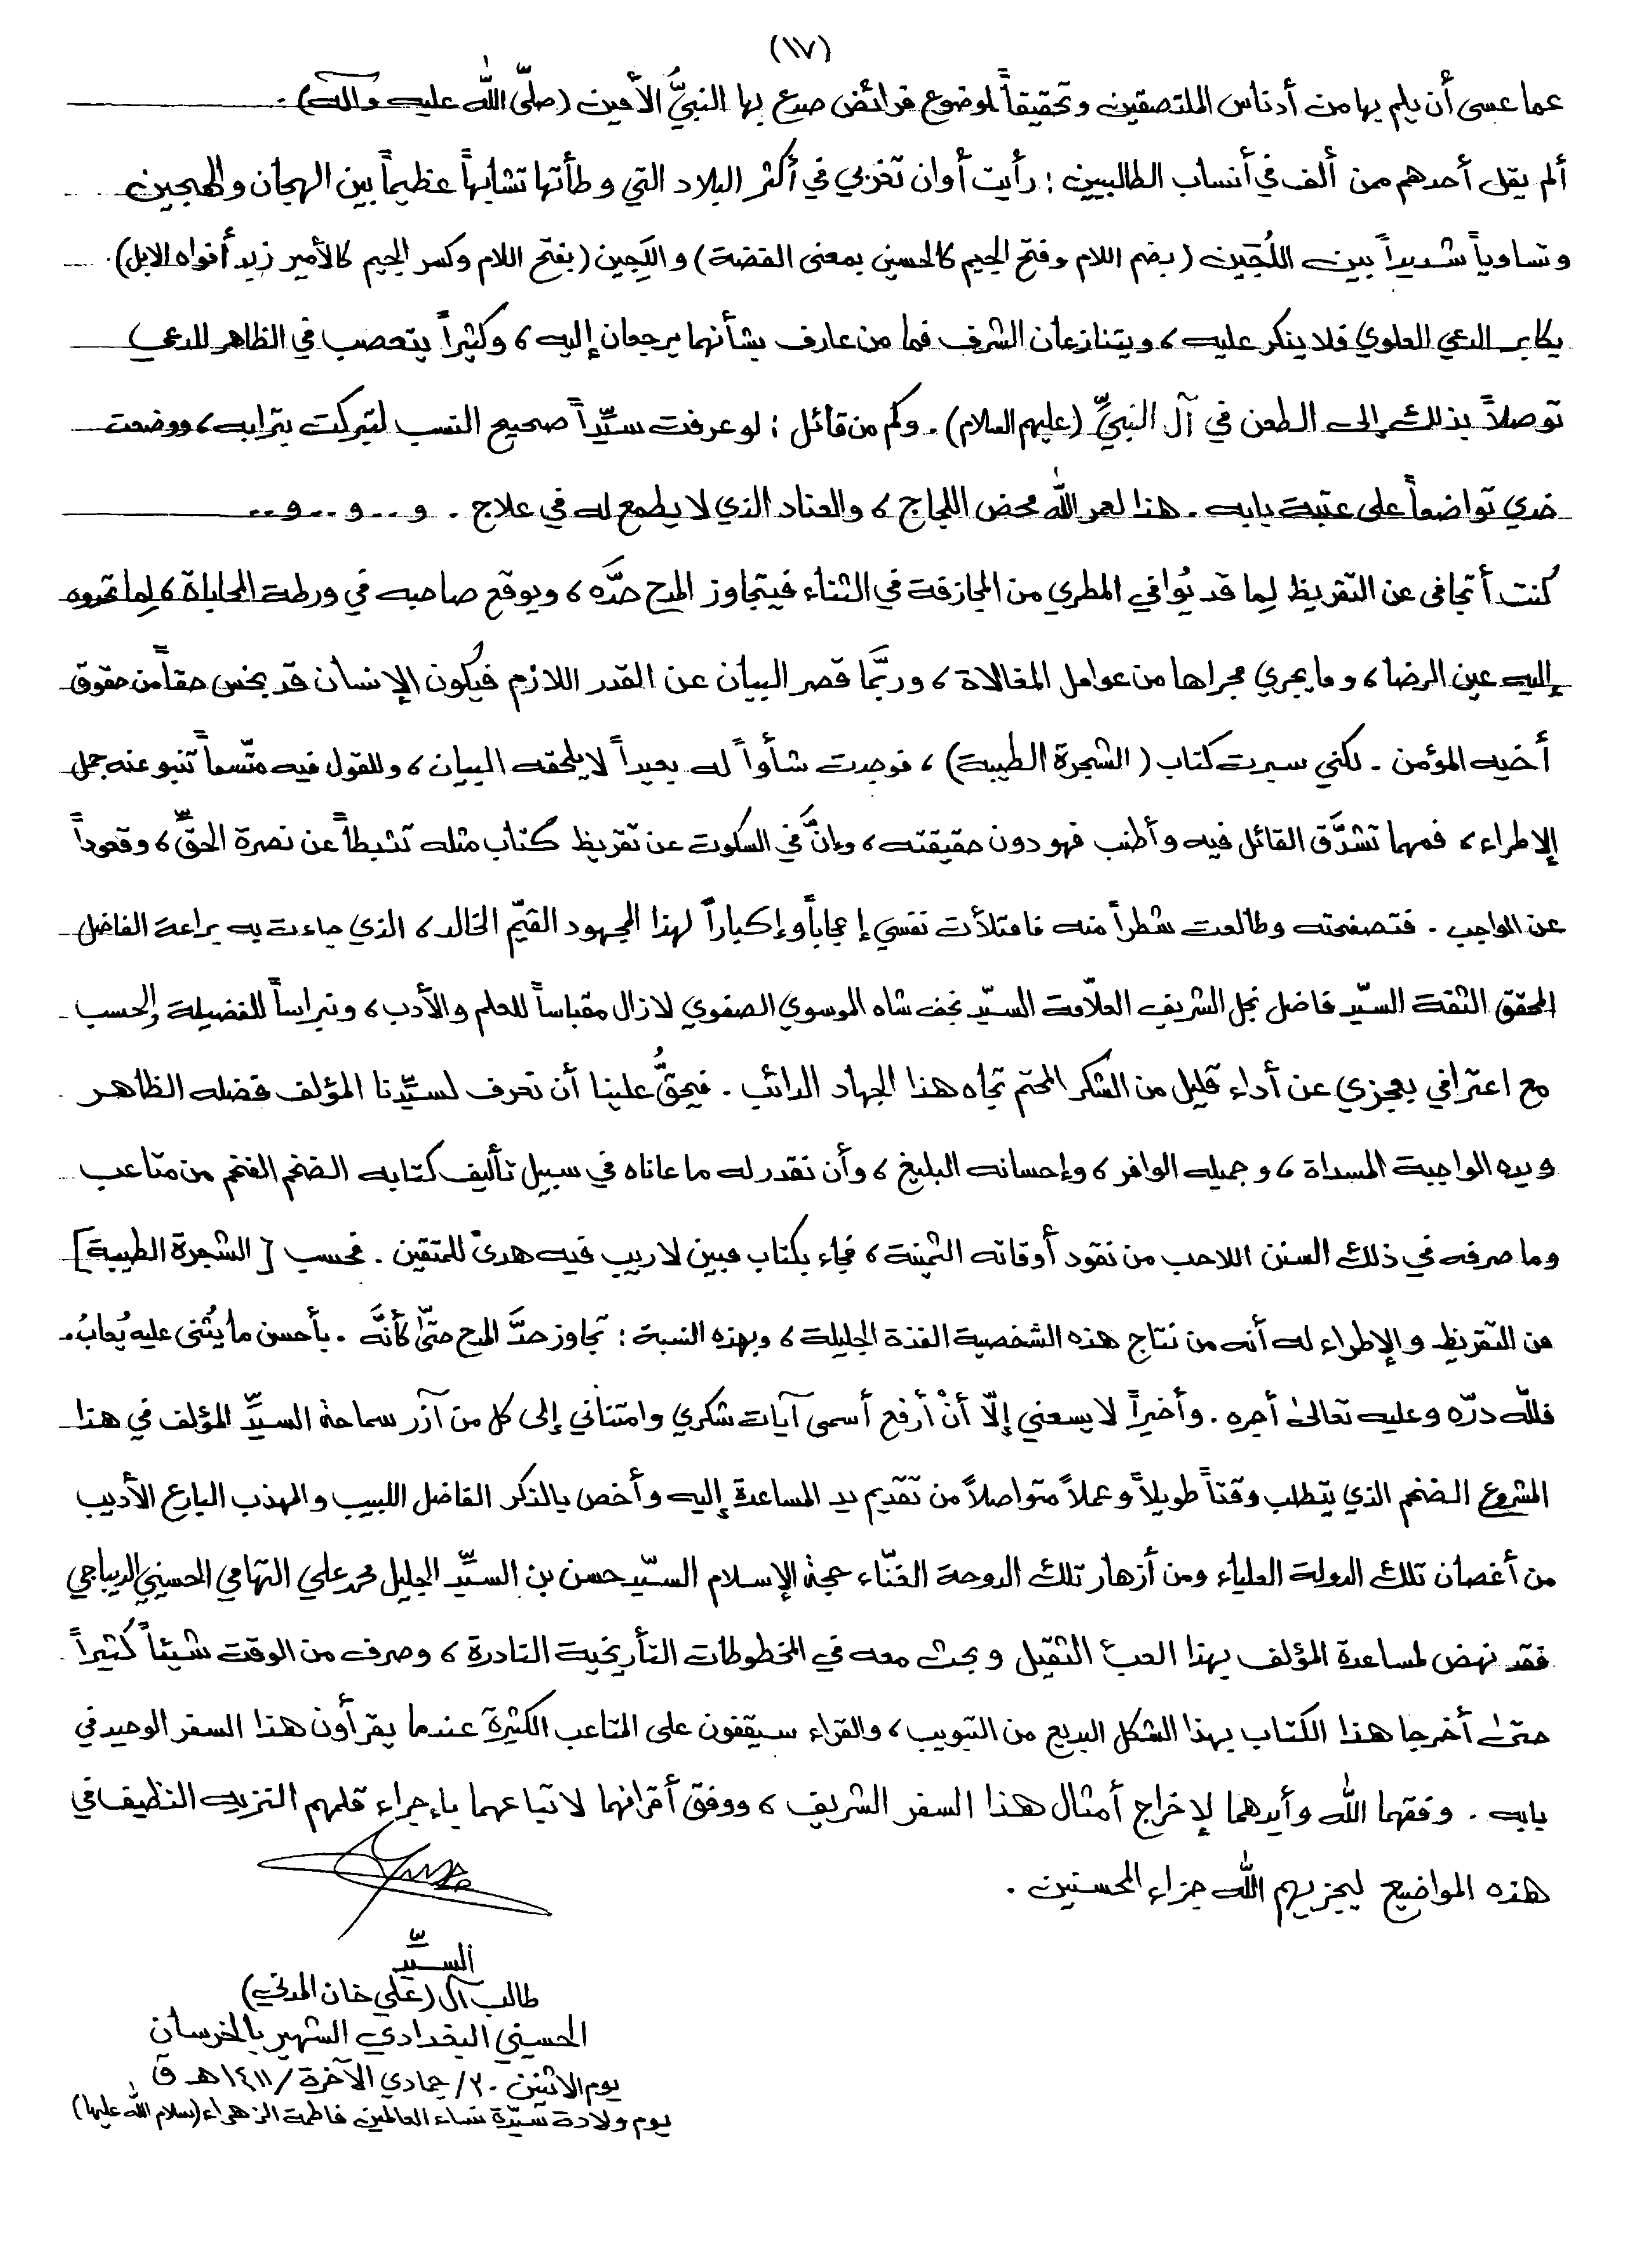 (١٧)
عما عسى أن يلم بها من أدناس الملتصقين وتحقيقاً لموضوع فرائض صدع بها النبيُّ الأمين (صلّى الله عليه وآله).
ألم يقل أحدهم ممن ألف في أنساب الطالبيين : رأيت أوان تغربي في أكثر البلاد التي وطأتها تشابهاً عظيماً بين الهجان والهجين
وتساوياً شديداً بين اللُجَين (بضم اللام وفتح الجيم كالحسين بمعنى الفضة) واللَجِين (بفتح اللام وكسر الجيم كالأمير زبد أفواه الابل).
يكابر الدعي العلوي فلا ينكر عليه ، ويتنازعان الشرف فما من عارف بشأنهما يرجعان إليه ، وكثيراً يتعصب في الظاهر للدعي
توصلاً بذلك إلى الطعن في آل النبيِّ (عليهم السلام) . وكم من قائل : لو عرفت سيِّداً صحيح النسب لتبركت بترابه ، ووضعت
خدي تواضعاً على عتبة بابه . هذا لعمر الله محض اللجاج ، والعناد الذي لا يطمع له في علاج . و .. و .. و ..
كُنت أتجافى عن التقريظ لِما قد يُوافي المطري من المجازفة في الثناء فيتجاوز المدح حدَّه ، ويوقع صاحبه في ورطة المحاباة ، لِما تحدوه
إليه عين الرضا ، وما يجري مجراها من عوامل المغالاة ، وربَّما قصر البيان عن القدر اللازم فيكون الإنسان قد بخس حقاً من حقوق
أخيه المؤمن . لكني سبرت كتاب (الشجرة الطيبة) ، فوجدت شأواً له بعيداً لا يلحقه البيان ، وللقول فيه متّسعاً تنبو عنه جمل
الإطراء ، فمهما تشدَّق القائل فيه وأطنب فهو دون حقيقته ، وإنَّ في السكوت عن تقريظ كتاب مثله تثبطاً عن نصرة الحقِّ ، وقعوداً
عن الواجب . فتصفحته وطالعت شطراً منه فامتلأت نفسي إعجاباً وإكباراً لهذا المجهود القيّم الخالد ، الذي جاءت به براعة الفاضل
المحقق الثقة السيّد فاضل نجل الشريف العلّامة السيّد نجف شاه الموسوي الصفوي لازال مقباساً للعلم والأدب ، ونبراساً للفضيلة والحسب
مع اعترافي بعجزي عن أداء قليل من الشكر المحتم تجاه هذا الجهاد الدائب . فيحقُّ علينا أن نعرف لسيِّدنا المؤلف فضله الظاهر
ويده الواجبة المسداة ، وجميله الوافر ، وإحسانه البليغ ، وأن نقدر له ما عاناه في سبيل تأليف كتابه الضخم الفخم من متاعب
وما صرفه في ذلك السنن اللاحب من نقود أوقاته الثمينة ، فجاء بكتاب مبين لا ريب فيه هدىً للمتقين . فحسب [الشجرة الطيبة]
من التقريظ والإطراء له أنه من نتاج هذه الشخصية الفذة الجليلة ، وبهذه النسبة : تجاوز حدَّ المدح حتّى كأنَّه . بأحسن ما يُثنى عليه يُعابُ.
فللّه درّه وعليه تعالى أجره . وأخيراً لا يسعني إلّا أنْ أرفع أسمى آيات شكري وامتناني إلى كل من آزر سماحة السيِّد المؤلف في هذا
المشروع الضخم الذي يتطلب وقتاً طويلاً وعملاً متواصلاً من تقديم يد المساعدة إليه وأخص بالذكر الفاضل اللبيب والمهذب البارع الأديب
من أغصان تلك الدولة العلياء ومن أزهار تلك الدوحة الغنّاء حجة الإسلام السيّد حسن بن السيِّد الجليل محمد علي التهامي الحسيني الديباجي
فقد نهض لمساعدة المؤلف بهذا العبئ الثقيل وبحث معه في المخطوطات التأريخية النادرة ، وصرف من الوقت شيئاً كثيراً
حتى أخرجا هذا الكتاب بهذا الشكل البديع من التبويب ، والقراء سيقفون على المتاعب الكثيرة عندما يقرأون هذا السفر الوحيد في
بابه . وفقهما الله وأيدهما لإخراج أمثال هذا السفر الشريف ، ووفق أقرانهما لاتباعهما بإجراء قلمهم النزيه النظيف في
هذه المواضيع ليجزيهم الله جزاء المحسنين .
السيِّد
طالب آل (علي خان المدني)
الحسيني البغدادي الشهير بالخرسان
يوم الاثنين ٢٠/ جمادي الآخرة / ١٤١١هـ ق
يوم ولادة سيّدة نساء العالمين فاطمة الزهراء (سلام الله عليها)